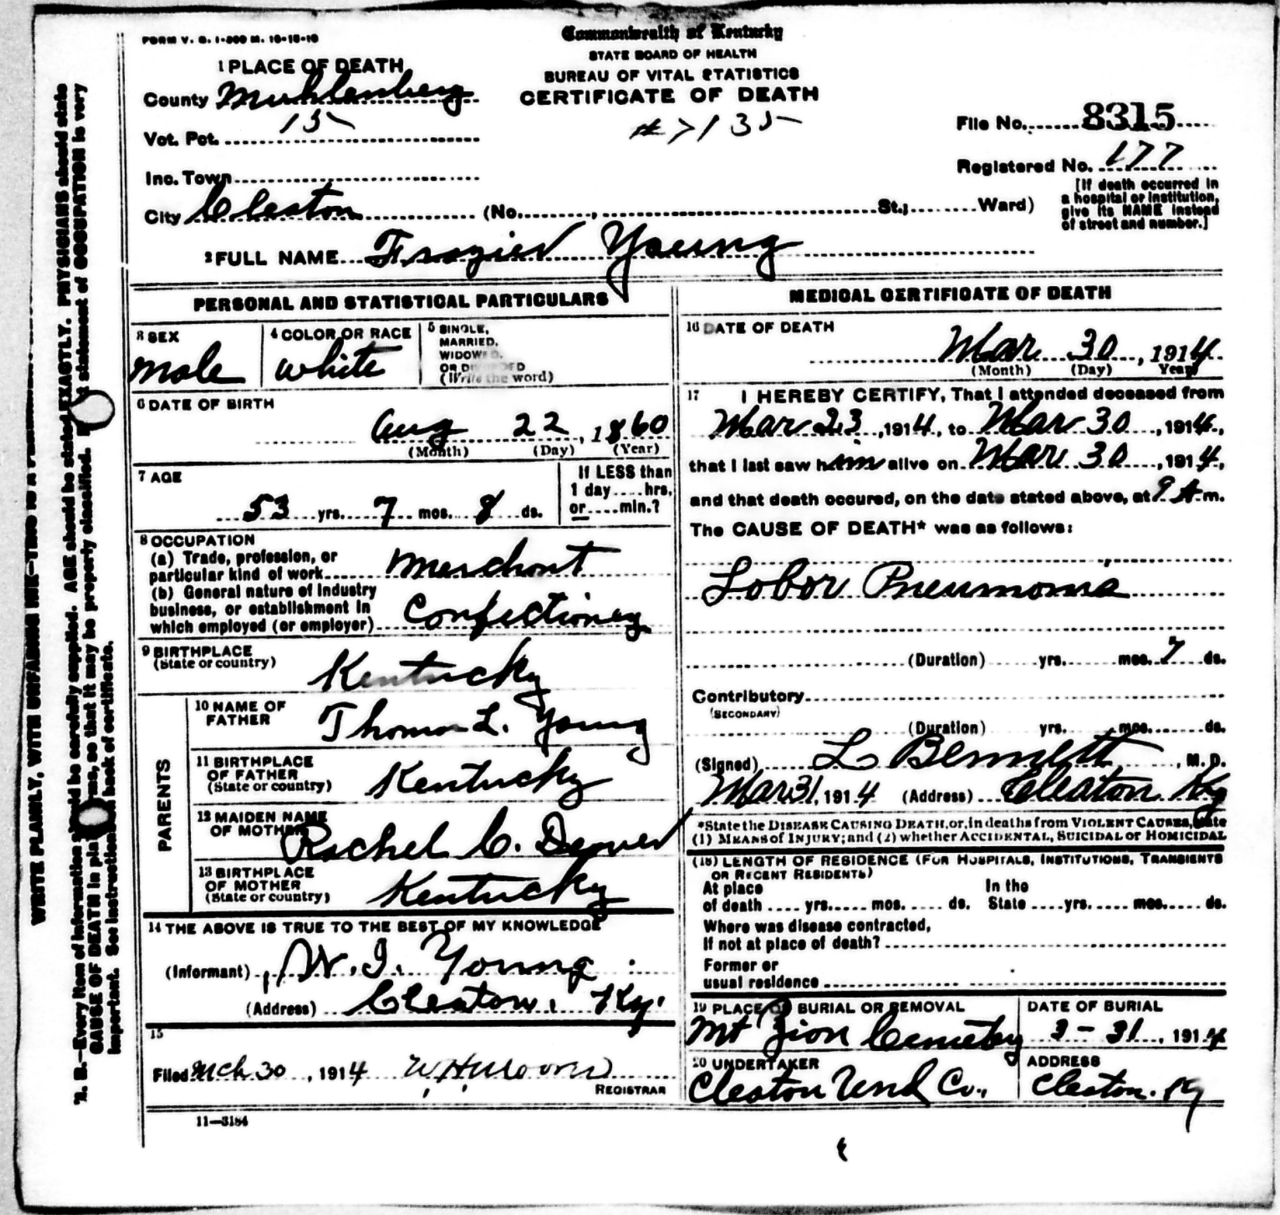 FORM V. S. 1-500 M. 10-15-10
Commonwealth of Kentucky
STATE BOARD OF HEALTH
BUREAU OF VITAL STATISTICS
CERTIFICATE OF DEATH
#7135
1 PLACE OF DEATH
County Muhlenberg
Vot. Pct. 15
Inc. Town
City Cleaton (No. , St.; Ward)
File No. 8315
Registered No. 177
[If death occurred in
a hospital or institution,
give its NAME instead
of street and number.]
2 FULL NAME Frazier Young
PERSONAL AND STATISTICAL PARTICULARS
3 SEX
male
4 COLOR OR RACE
white
5 SINGLE,
MARRIED,
WIDOWED,
OR DIVORCED
(Write the word)
6 DATE OF BIRTH
Aug 22, 1860
(Month) (Day) (Year)
7 AGE
53 yrs. 7 mos. 8 ds.
If LESS than
1 day....hrs,
or....min.?
8 OCCUPATION
(a) Trade, profession, or
particular kind of work Merchant
(b) General nature of Industry
business, or establishment in
which employed (or employer) Confectioney
9 BIRTHPLACE
(State or country) Kentucky
PARENTS
10 NAME OF
FATHER Thomas L. Young
11 BIRTHPLACE
OF FATHER
(State or country) Kentucky
12 MAIDEN NAME
OF MOTHER Rachel C.
13 BIRTHPLACE
OF MOTHER
(State or country) Kentucky
14 THE ABOVE IS TRUE TO THE BEST OF MY KNOWLEDGE
(Informant) W. I. Young
(Address) Cleaton, Ky.
15
Filed Mch 30, 1914
REGISTRAR
11-3184
MEDICAL CERTIFICATE OF DEATH
16 DATE OF DEATH
Mar 30, 1914
(Month) (Day) Year
17 I HEREBY CERTIFY, That I attended deceased from
Mar 23, 1914, to Mar 30, 1914,
that I last saw him alive on Mar 30, 1914,
and that death occured, on the date stated above, at 9 A m.
The CAUSE OF DEATH* was as follows:
Lobar Pneumonia
(Duration) yrs. mos. 7 ds.
Contributory
(SECONDARY)
(Duration) yrs. mos. ds.
(Signed) L Bennett, M.D.
Mar 31, 1914 (Address) Cleaton Ky
*State the DISEASE CAUSING DEATH, or, in deaths from VIOLENT CAUSES, state
(1) MEANS of INJURY; and (2) whether ACCIDENTAL, SUICIDAL OR HOMICIDAL
(18) LENGTH OF RESIDENCE (FOR HOSPITALS, INSTITUTIONS, TRANSIENTS
OR RECENT RESIDENTS)
At place In the
of death .... yrs. .... mos. .... ds. State ....yrs. .... mos. .... ds.
Where was disease contracted,
If not at place of death?
Former or
usual residence
19 PLACE OF BURIAL OR REMOVAL
Mt Zion Cemetery
DATE OF BURIAL
3-31, 1914
20 UNDERTAKER
Cleaton Und Co.,
ADDRESS
Cleaton. Ky
N. B.—Every item of information should be carefully supplied. AGE should be stated EXACTLY. PHYSICIANS should state
CAUSE OF DEATH in plain terms, so that it may be properly classified. statement of OCCUPATION is very
important. See instructions on back of certificate.
WRITE PLAINLY, WITH UNFADING INK—THIS IS A PERMANENT